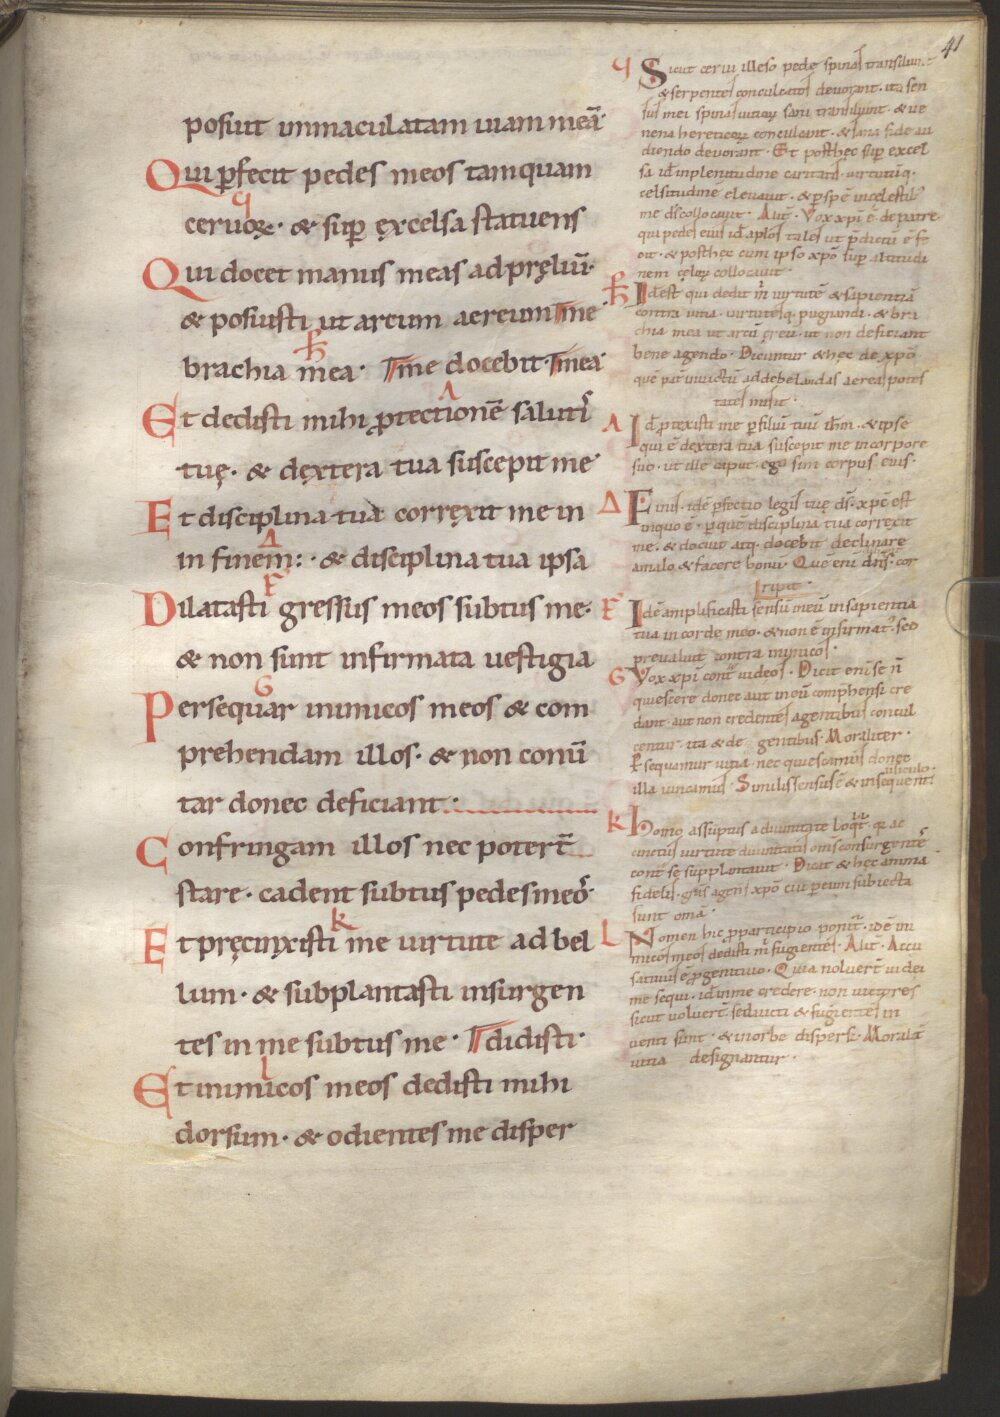 41
posuit inmaculatam uiam meā·
Qui p̄fecit pedes meos tamquam
ceruoꝝ· & sup̄ ęxcelsa statuens
Qui docet manus meas ad pręliū·
& posuisti ut arcum aereum me
brachia mea· me docebit· mea·
Et dedisti mihi ꝓtectionē saluti᷒
tuę· & dęxtera tua suscepit me
Et disciplina tua corręxit me in
in finem:· & disciplina tua ipsa
Dilatasti gressus meos subtus me·
& non sunt infirmata uestigia
Persequar inimicos meos & com
prehendam illos· & non conuĩ
tar donec deficiant·
Confringam illos nec potert̄
stare· cadent subtus pedes meo᷒·
Et pręcinxisti me uirtute ad bel
lum· & subplantasti insurgen
tes in me subtus me· didisti·
Et inimicos meos dedisti mihi
dorsum· & odientes me disper
q Sicut cerui illeso pede spinas transiliun
& serpentes conculcatos deuorant· ita sen
sus mei spinas uitioꝝ sani transiliunt· & ue
nena hereticoꝝ conculcant· & sana fide au
diendo deuorant· Et posthęc sup̄ excel
sa id ē in plenitudine caritatis uirtutūq·
celsitudinē eleuauit· & p̄ spē in cęlestib;
me d̄s collocauit· Alit̄· Vox xp̄i ē de patre·
qui pedes eius id ap̄los tales ut p̄dictū ē fe
cit· & posthęc cum ipso xp̄o sup̄ altitudi
nem cęloꝝ collocauit·
h Id est qui dedit m̄ uirtutē & sapientiā
contra uitia· uirtutesq· pugnandi· & bra
chia mea ut arcū ęreū· ut non deficiant
bene agendo· Dicuntur & hęc de xp̄o
quē pat̄ inuictū ad debelandas aereas potes
tates misit·
Λ Id p̄texisti me p̄ filiū tuū ih̄m· & ipse
qui ē dextera tua suscepit me in corpore
suo· ut ille caput· ego sim corpus eius·
Δ Finis· idē p̄fectio legis tuę d̄s· xp̄c est
inquo ē· p̄ quē disciplina tua correxit
me· & docuit atq· docebit declinare
a malo & facere bonū· Quē enī diligit dn̄s· cor
ripit·
F Idē amplificasti sensū meū in sapientia
tua in corde meo· & non ē infirmat᷒· sed
preualuit contra inimicos·
G Vox xp̄i cont̄ iudeos· Dicit enī se n̄
quiescere donec aut in eū comphensi cre
dant· aut non credentes agentibus concul
centur· ita & de gentibus· Moraliter·
P̄sequamur uitia· nec quiescamus donec
illa uincamus· Similis sensus ē & in sequenti
uersiculo·
k Homo assūptus a diuinitate loq̄t̄· qa ac
cinctus uirtute diuinitatis om̄s consurgentē
cont̄ se supplantauit· Dicit & hęc anima
fidelis· grās agens xp̄o cui p̄ eum subiecta
sunt om̄ā·
L Nomen hic p̄ participio ponit᷒· idē ini
micos meos dedisti m̄ fugientes· Alit̄· Accu
satiuus ē p̄ genitiuo· Quia noluer̄t iudei
me sequi· id in me credere· non uictores
sicut uoluer̄t sed uicti & fugientes in
uenti sunt· & in orbe dispersi· Moralit̄
uitia designantur·